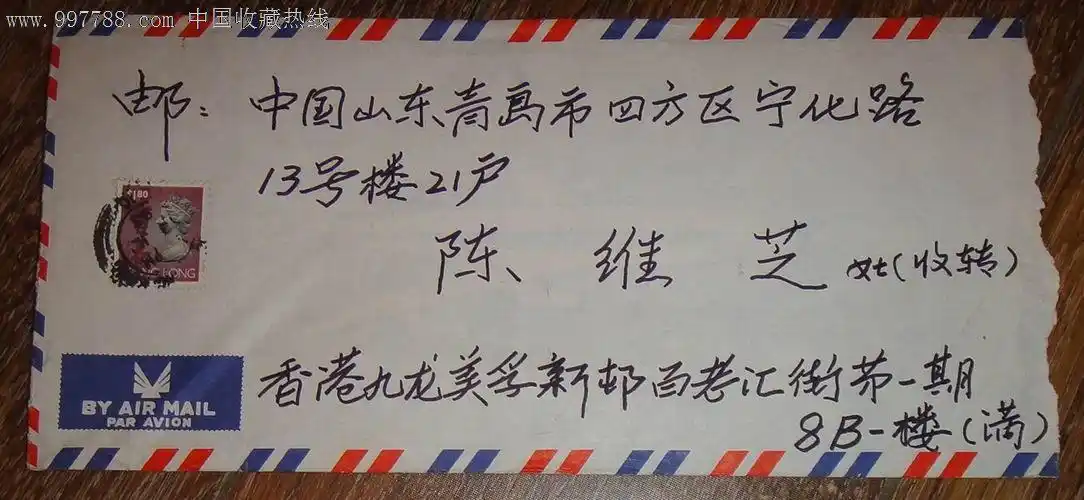 www.997788.com 中国收藏热线
邮: 中国山东青岛市四方区宁化路
13号楼21户
陈维芝 (收转)
$1.80
HONG KONG
BY AIR MAIL
PAR AVION
香港九龙美孚新邨百老汇街第一期
8B-楼(满)